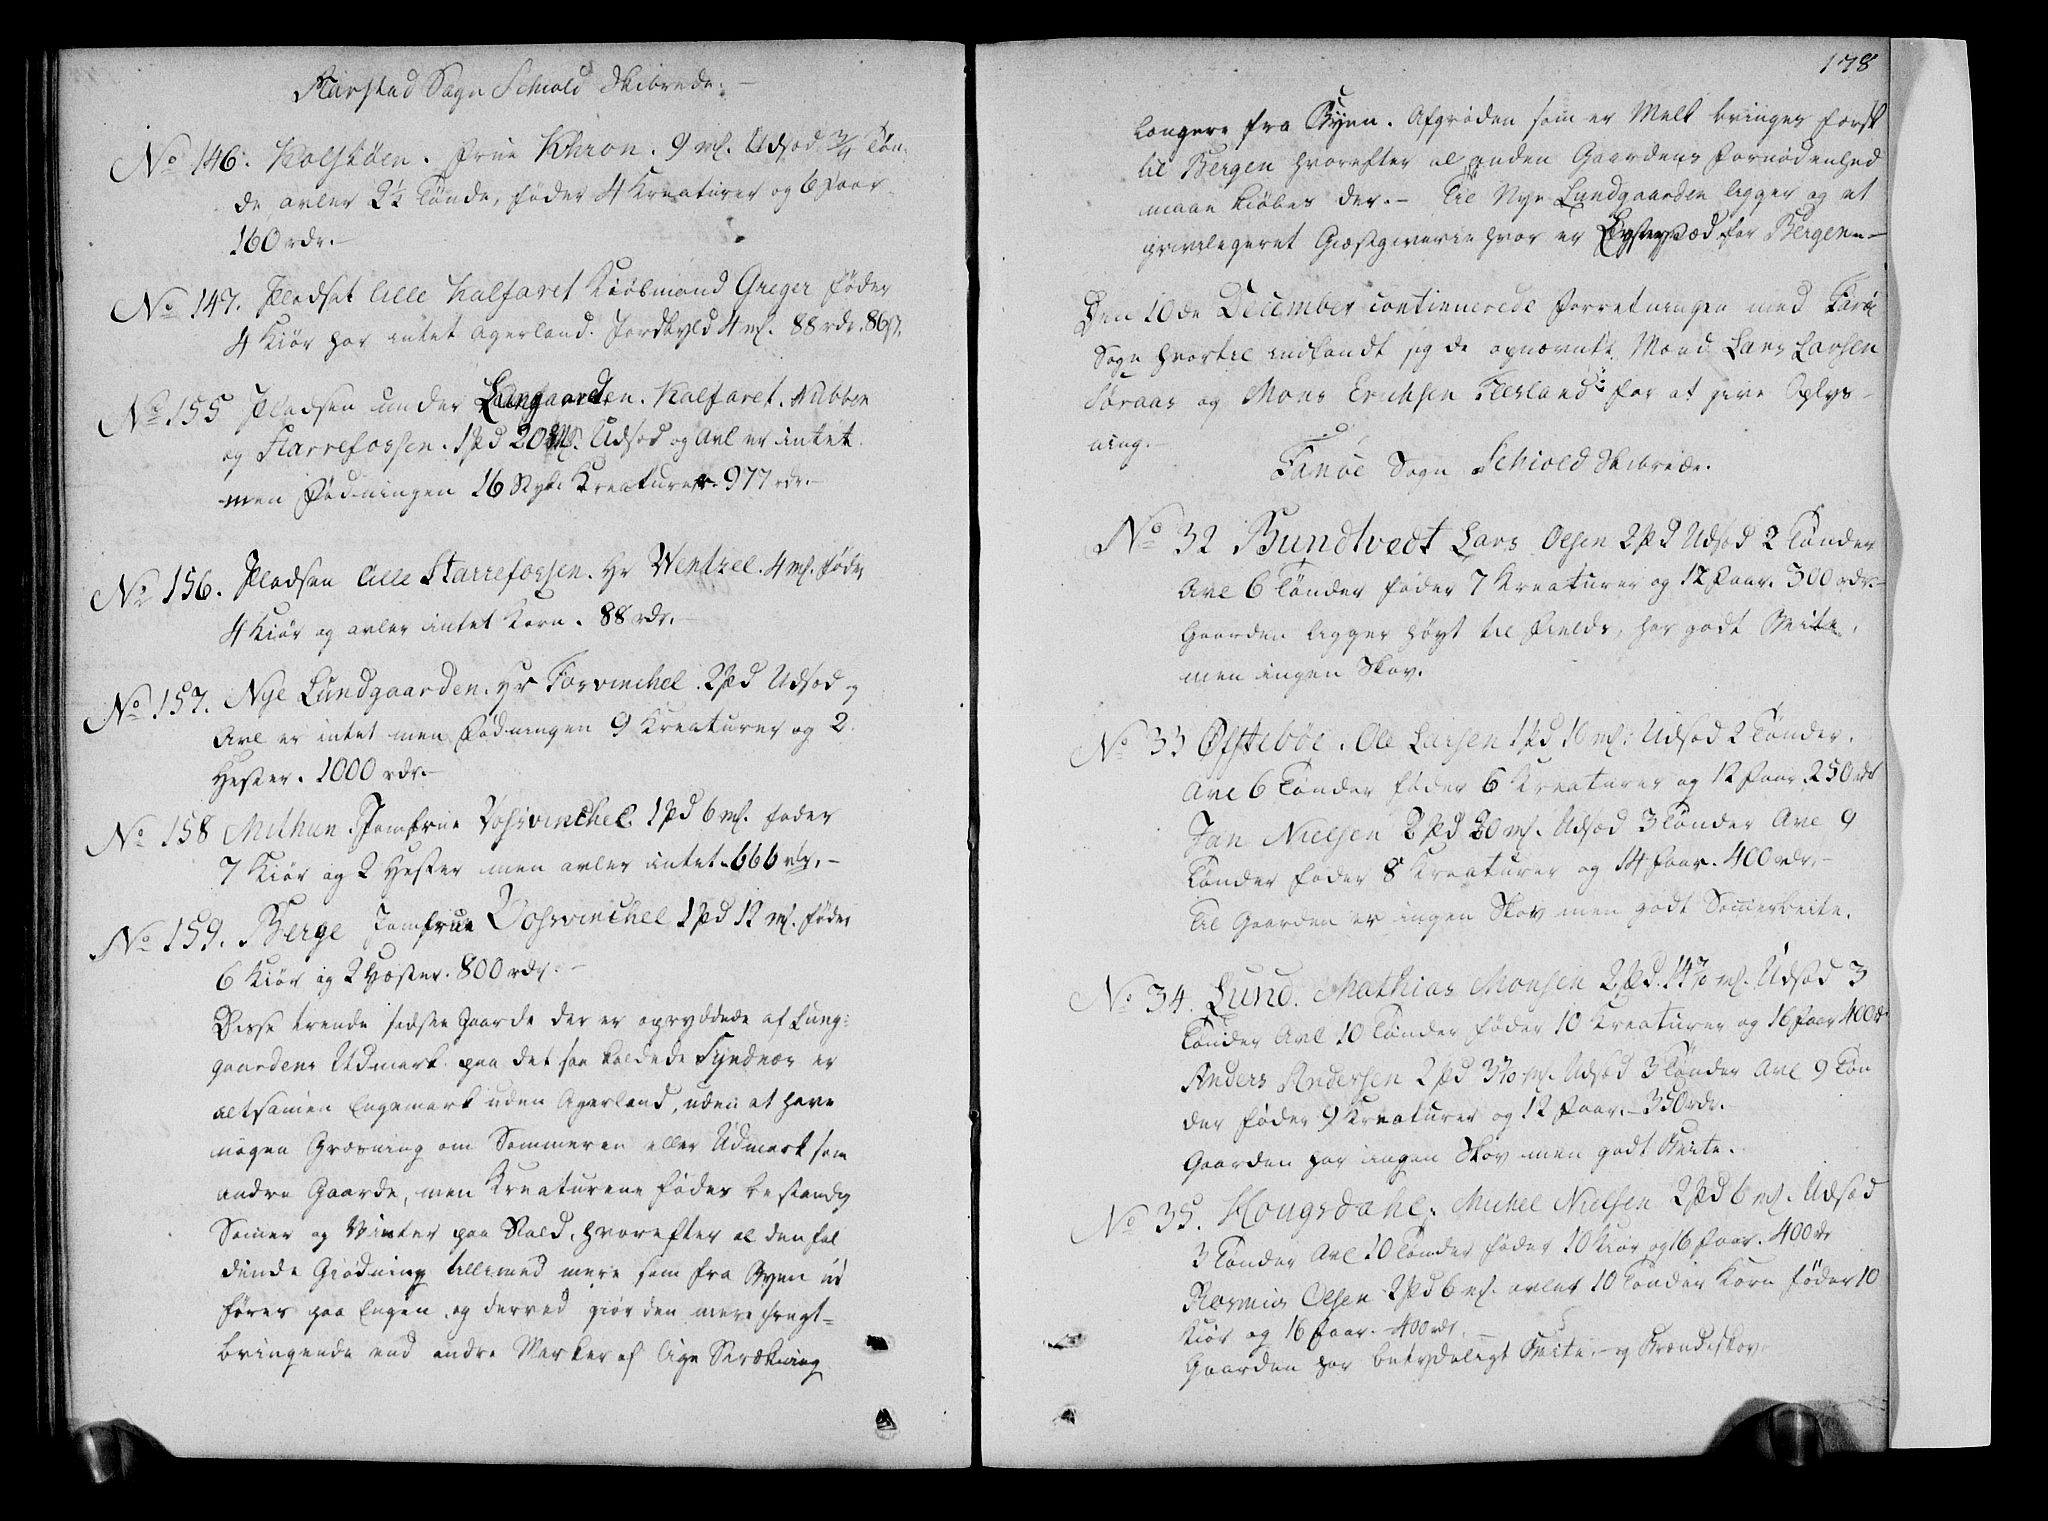 Aarstad Sogn Schiold Skibrede.
No 146. Kalfköen. Frue Khron. 9 mf. Udsæd ¾ Tøn-
de, avler 2½ Tønde, føder 4 Kreaturer og 6 Faar
160 rdr.
No 147. Pladset lille Kalfaret Kiøbmand Greger føder
4 Kiør har intet Agerland. Jordskyld 4 mf. 88 rdr. 86 s.
No 155 Pladsen under Lungaarden. Kalfaret. Nubben
og Starrefossen. 1 Pd 20 Mf. Udsæd og Avl er intet
men Fødningen 16 Stk. Kreaturer. 977 rdr.
No 156. Pladsen lille Starrefossen. Hr Wentzel. 4 mf. føder
4 Kiør og avler intet Korn. 88 rdr.
No 157. Nye Lundgaarden. Hr Forvinchel. 2 Pd Udsæd og
Avl er intet men Fødningen 9 Kreaturer og 2
Hester. 1000 rdr.
No 158 Mithun. Jomfrue Vosvinchel 1 Pd 6 mf. føder
7 Kiør og 2 Hester men avler intet. 666 rdr.
No 159. Berge Jomfrue Vosvinchel 1 Pd 12 mf. føder
6 Kiør og 2 Hester. 800 rdr.
Disse trende sidste Gaarde der er opryddede af Lung-
gaardens Udmark paa det saa kaldede Fyndnæs er
altsammen Engemark uden Agerland, uden at have
nogen Græsning om Sommeren eller Udmark som
andre Gaarde, men Kreaturene føder bestandig
Somer og Vinter paa Stald, hvorefter al den fal
dende Giødning tillimed mere som fra Byen ud
føres paa Engen, og derved giør den mere frugt-
bringende end andre Marker af lige Strækning
178
længere fra Byen. Afgrøden som er Melk bringes først
til Bergen hvorefter al anden Gaardens Fornødenhed
maae kiøbes der. Til Nye Lundgaarden ligger og et
privilegeret Giæstgiverie hvor er Lyststæd for Bergen.
Den 10de December continuerede Forretningen med Fanø
Sogn hvortil indfandt sig de opnævnte Mænd Lars Larsen
Søraas og Mons Erichsen Flesland for at give Oplys-
ning.
Fanøe Sogn Schiold Skibrede.
No 32 Bundtvedt Lars Olsen 2 Pd Udsæd 2 Tønder
Avl 6 Tønder føder 7 Kreaturer og 12 Faar. 300 rdr.
Gaarden ligger høyt til Fields, har godt Beite,
men ingen Skov.
No 33 Øfstebøe. Ole Larsen 1 Pd 16 mf. Udsæd 2 Tønder.
Avl 6 Tønder føder 6 Kreaturer og 12 Faar 250 rdr
Jan Nielsen 2 Pd 20 mf. Udsæd 3 Tønder Avl 9
Tønder føder 8 Kreaturer og 14 Faar. 400 rdr.
Til Gaarden er ingen Skov men godt Somerbeite.
No 34. Lund. Mathias Monsen 2 Pd. 14 mf. Udsæd 3
Tønder Avl 10 Tønder føder 10 Kreaturer og 16 Faar 400 rdr
Anders Andersen 2 Pd mf. Udsæd 3 Tønder Avl 9 Tøn
der føder 9 Kreaturer og 12 Faar. 350 rdr.
Gaarden har ingen Skov men godt Beite.
No 35. Hougsdahl. Michel Nielsen 2 Pd 6 mf. Udsæd
3 Tønder Avl 10 Tønder føder 10 Kiør og 16 Faar. 400 rdr
Rasmus Olsen 2 Pd 6 mf. avler 10 Tønder Korn føder 10
Kiør og 16 Faar. 400 rdr.
Gaarden har betydeligt Beite og Brændeskov.